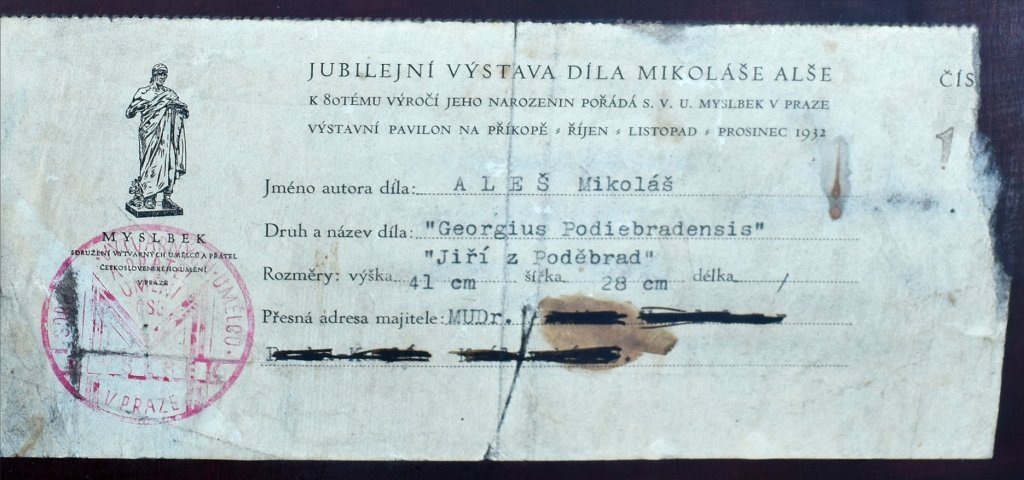 JUBILEJNÍ VÝSTAVA DÍLA MIKOLÁŠE ALŠE
ČÍS
K 80TÉMU VÝROČÍ JEHO NAROZENIN POŘÁDÁ S. V. U. MYSLBEK V PRAZE
VÝSTAVNÍ PAVILON NA PŘÍKOPĚ * ŘÍJEN * LISTOPAD * PROSINEC 1932
1
Jméno autora díla: ALEŠ Mikoláš
Druh a název díla: "Georgius Podiebradensis"
"Jiří z Poděbrad"
Rozměry: výška 41 cm šířka 28 cm délka /
Přesná adresa majitele: MUDr.
MYSLBEK
SDRUŽENÍ VÝTVARNÝCH UMĚLCŮ A PŘÁTEL
ČESKOSLOVENSKÉHO UMĚNÍ
V PRAZE
UMĚLCŮ
V PRAZE